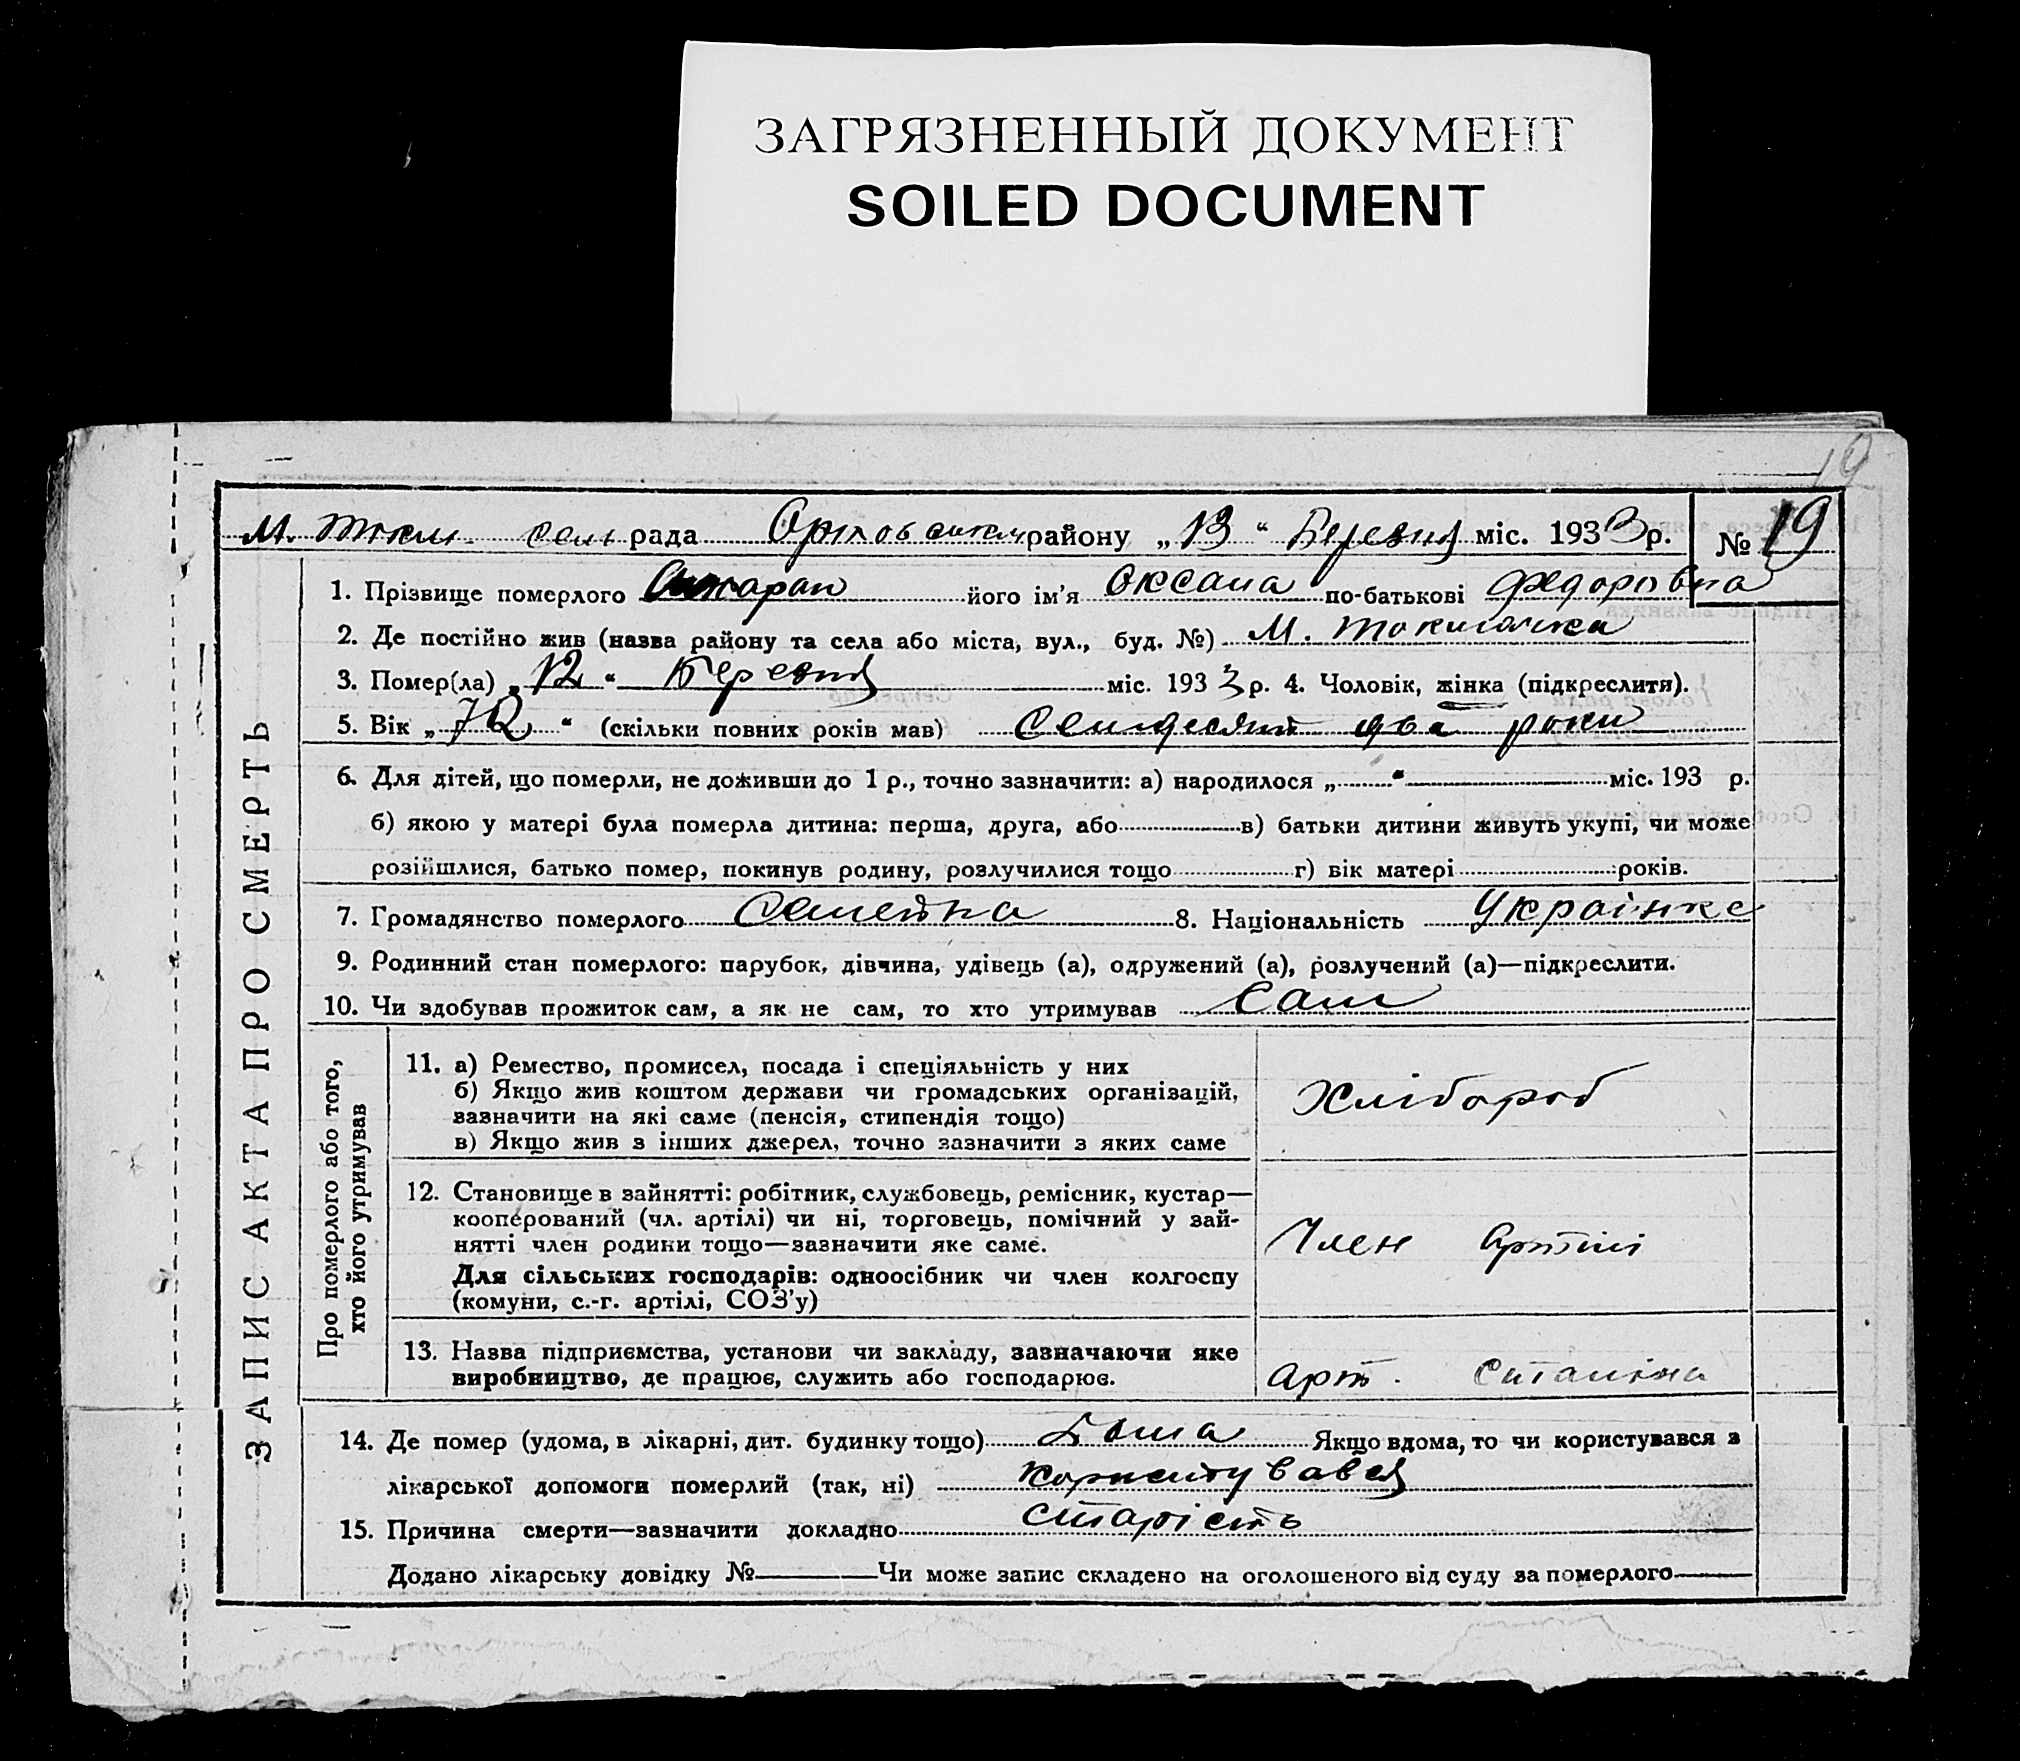 ЗАГРЯЗНЕННЫЙ ДОКУМЕНТ
SOILED DOCUMENT
19
М. Токм. сель рада Оріховського району „13“ Березня міс. 1933 р. № 19
1. Прізвище померлого його ім’я Оксана по-батькові Федоровна
2. Де постійно жив (назва району та села або міста, вул., буд. №) М. Токмачка
3. Помер(ла) „12“ Березня міс. 1933 р. 4. Чоловік, жінка (підкреслитя).
5. Вік „72“ (скільки повних років мав) Семдесят два роки
6. Для дітей, що померли, не доживши до 1 р., точно зазначити: а) народилося „ “ міс. 193 р.
б) якою у матері була померла дитина: перша, друга, або в) батьки дитини живуть укупі, чи може
розійшлися, батько помер, покинув родину, розлучилися тощо г) вік матері років.
7. Громадянство померлого 8. Національність Українка
9. Родинний стан померлого: парубок, дівчина, удівець (а), одружений (а), розлучений (а)—підкреслити.
10. Чи здобував прожиток сам, а як не сам, то хто утримував Сам
ЗАПИС АКТА ПРО СМЕРТЬ
Про померлого або того,
хто його утримував
11. а) Ремество, промисел, посада і спеціяльність у них
б) Якщо жив коштом держави чи громадських організацій,
зазначити на які саме (пенсія, стипендія тощо)
в) Якщо жив з інших джерел, точно зазначити з яких саме
Хлібороб
12. Становище в зайнятті: робітник, службовець, ремісник, кустар—
кооперований (чл. артілі) чи ні, торговець, помічний у зай-
нятті член родини тощо—зазначити яке саме.
Для сільських господарів: одноосібник чи член колгоспу
(комуни, с.-г. артілі, СОЗ’у)
Член Артілі
13. Назва підприємства, установи чи закладу, зазначаючи яке
виробництво, де працює, служить або господарює.
Арт. Сталіна
14. Де помер (удома, в лікарні, дит. будинку тощо) Дома Якщо вдома, то чи користувався з
лікарської допомоги померлий (так, ні) Користувався
15. Причина смерти—зазначити докладно старість
Додано лікарську довідку № Чи може запис складено на оголошеного від суду за померлого